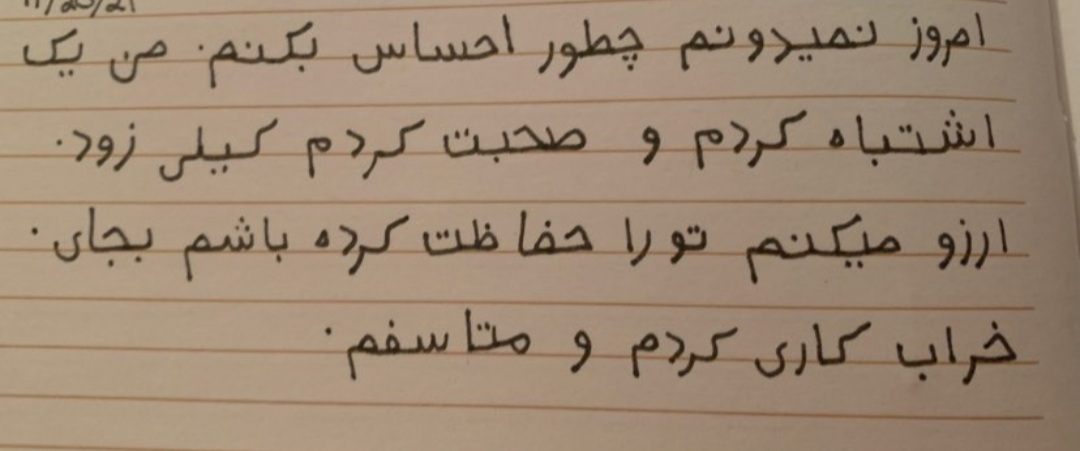 11/23/21
امروز نمیدونم چطور احساس بکنم. من یک
اشتباه کردم و صحبت کردم کیلی زود.
ارزو میکنم تو را حفاظت کرده باشم بجای.
خراب کاری کردم و متاسفم.